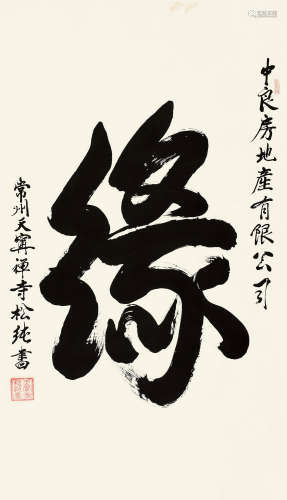 中良房地產有限公司
緣
常州天寧禪寺松純書